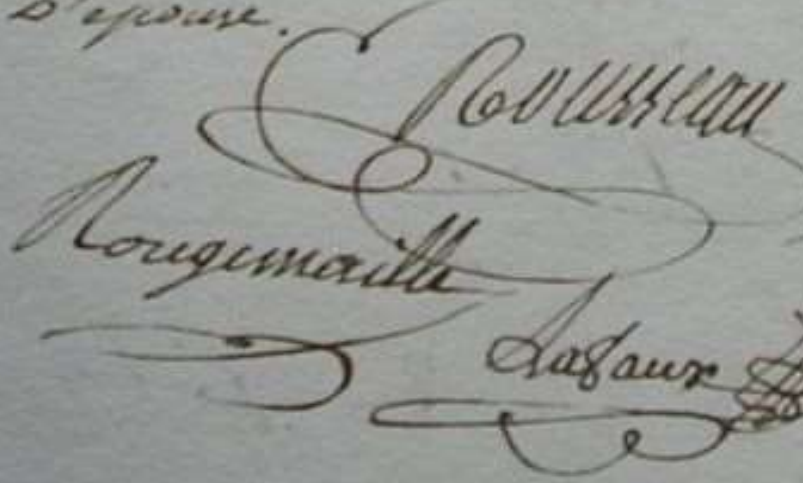 D'epouse.
Rousseau
Rougemaille
Lafaux